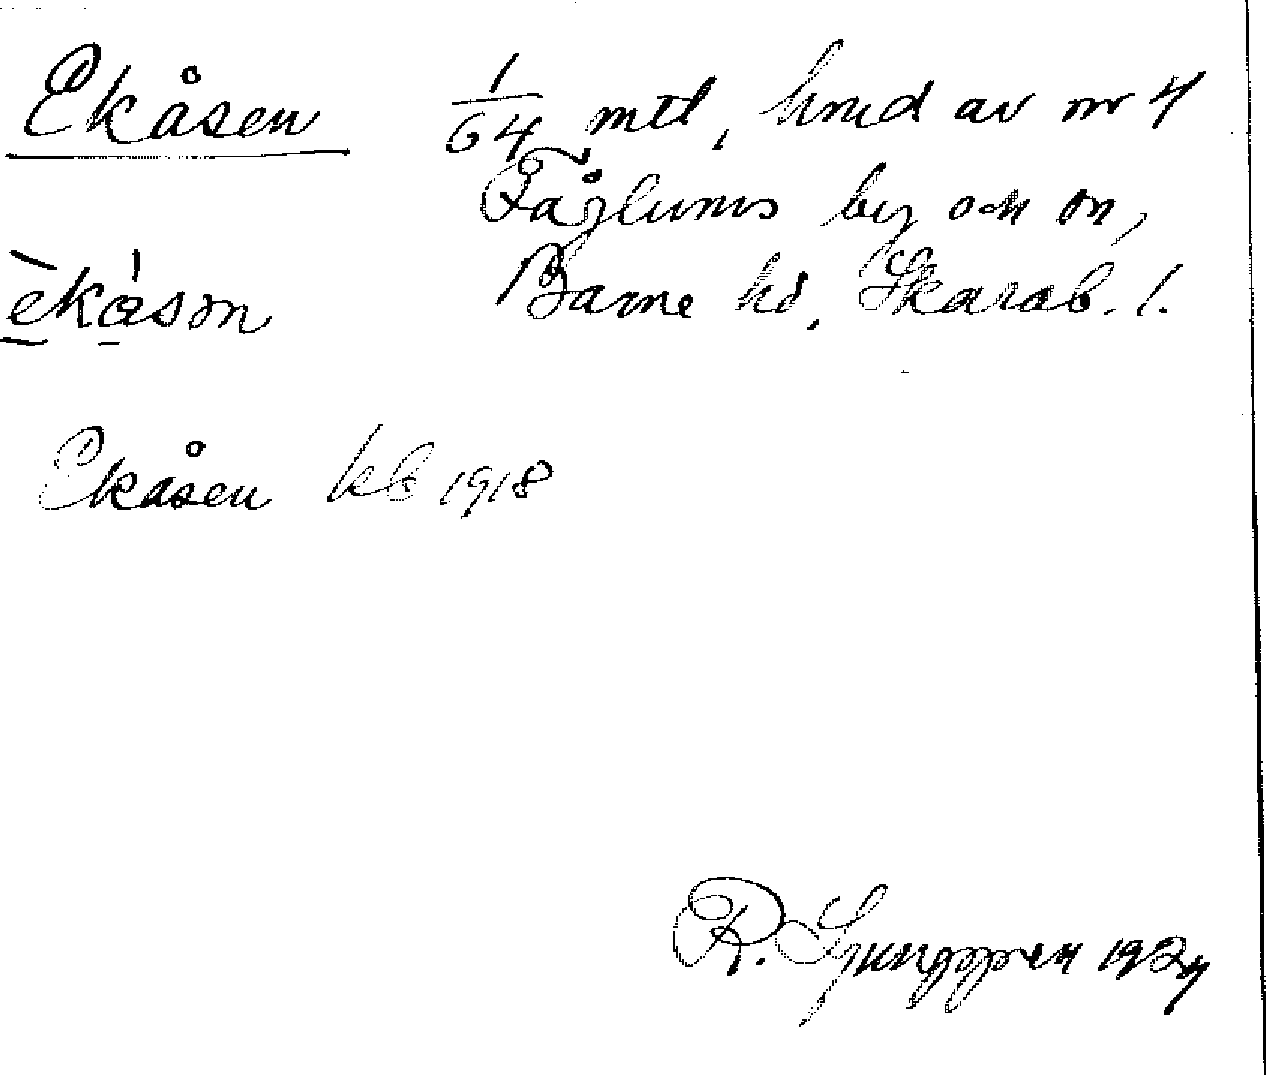 Ekåsen 1/64 mtl, hmd av nr 4
Fåglums by och sn,
èkåsơn Barne hd, Skarab. l.
Ekåsen kb 1918
R. Ljunggren 1924